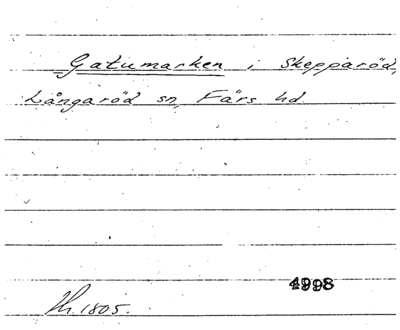 Gatumarken i Skepparöd,
Långaröd sn, Färs hd.
4998
Th. 1805.